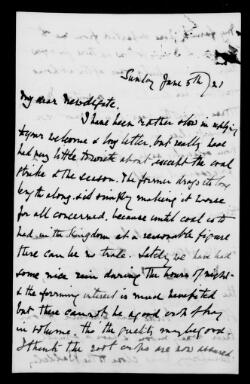 Sunday June 5th /21
My dear Newdigate,
I have been rather slow in replying
to your welcome & long letter, but really have
had very little to write about except the coal
strike & the season. The former drags its long
length along, & is simply making it worse
for all concerned, because until coal is to be
had in the Kingdom at a reasonable figure
there can be no trade. Lately we have had
some nice rain during the hours of night
& the farming interest is much benefited
but there cannot be a good crop of hay
in volume, tho' the quality may be good
I think the root crops are now assured